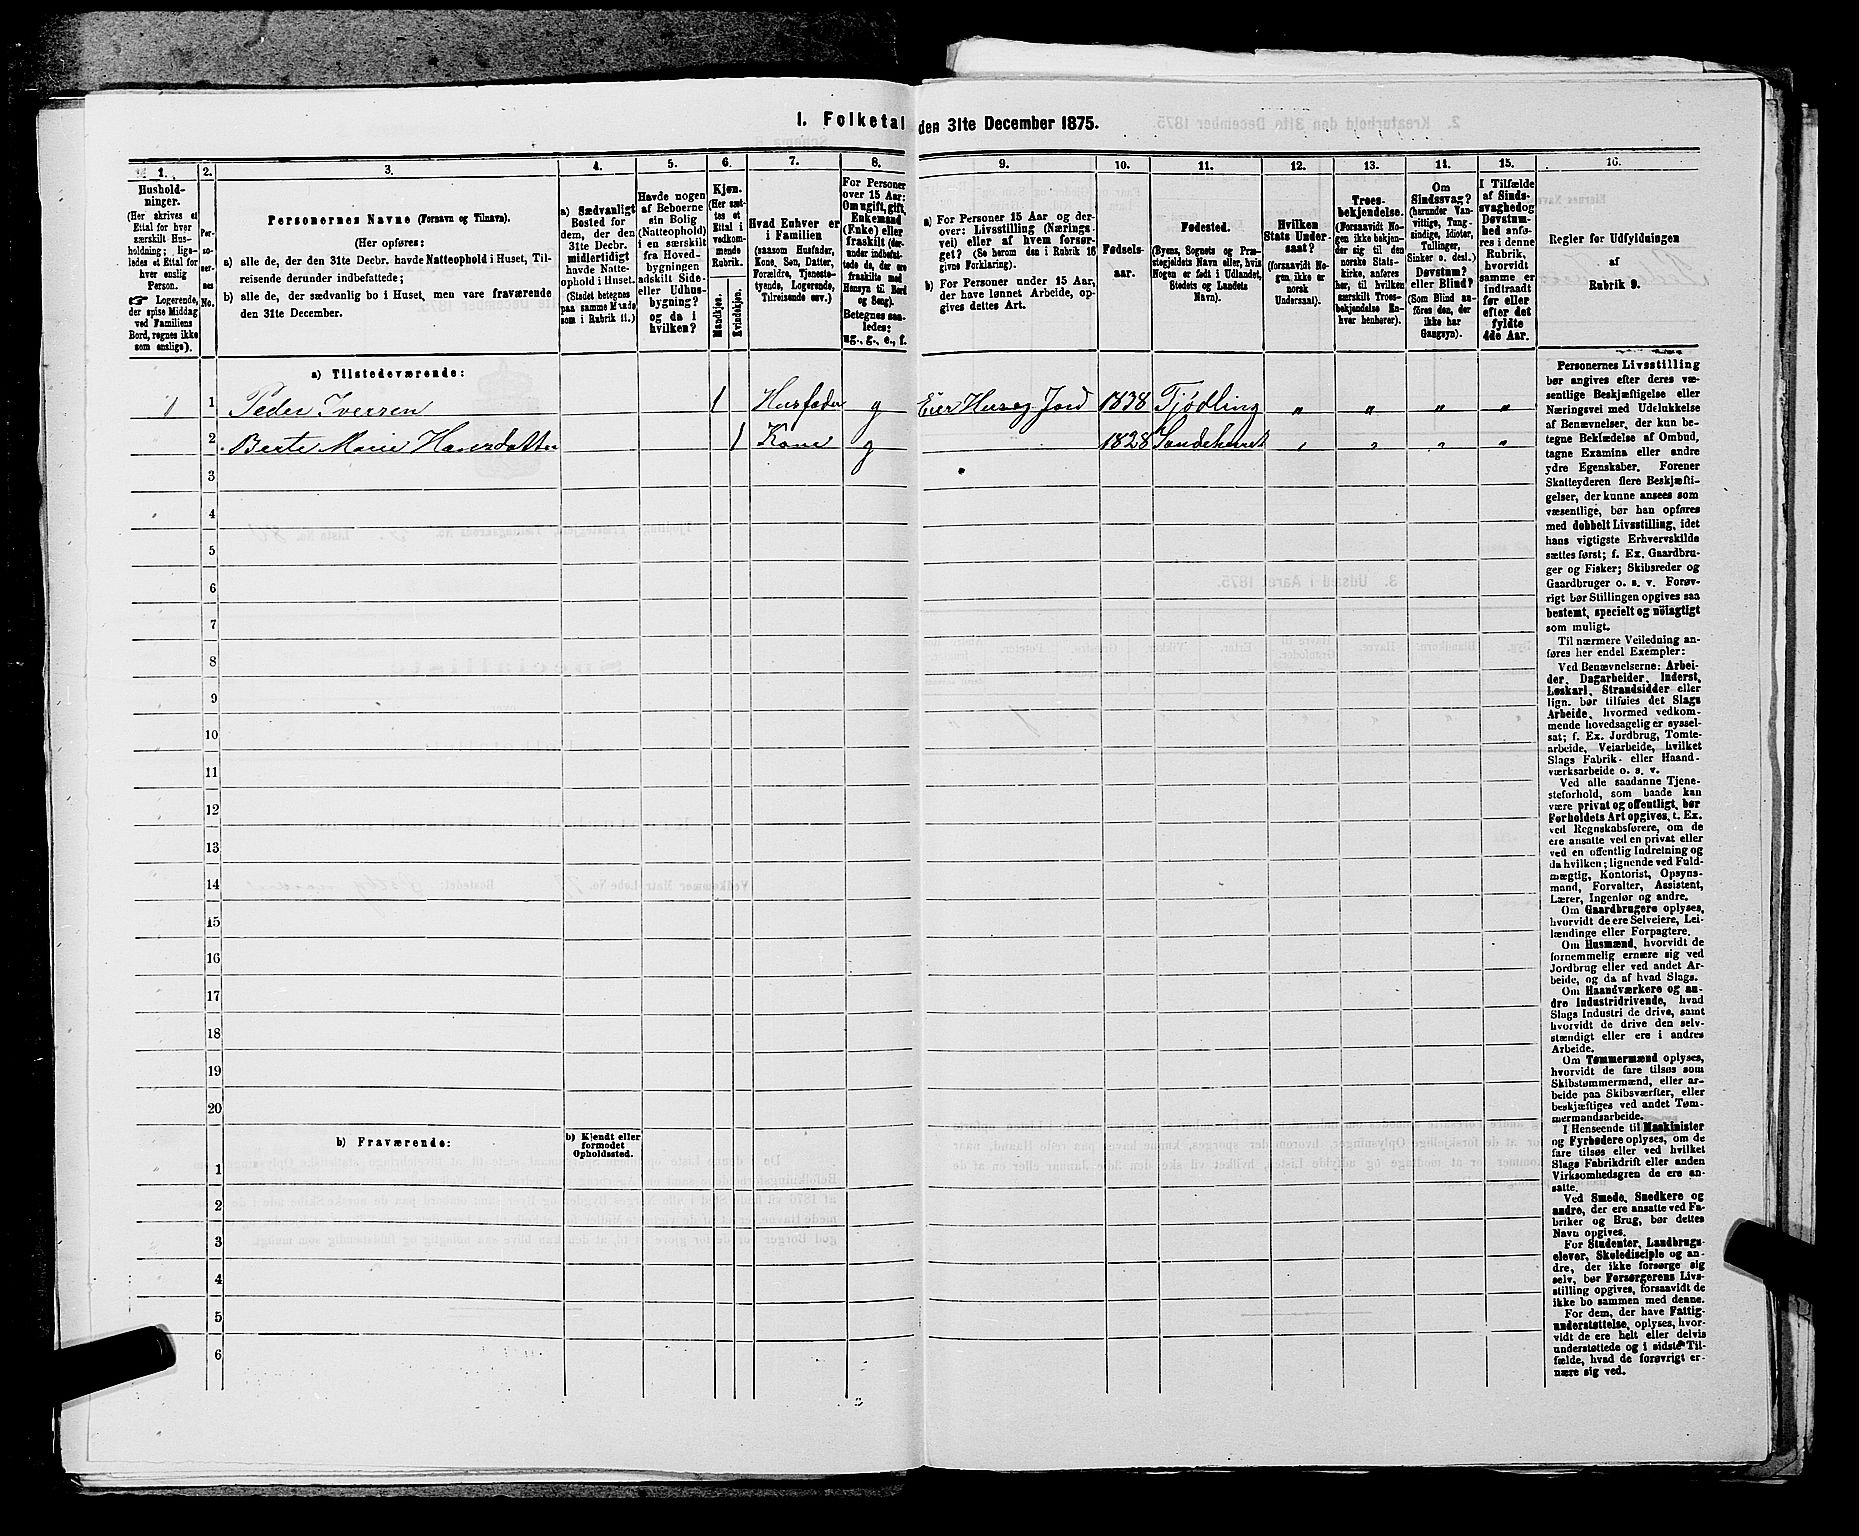 1. Folketal den 31te December 1875.
1.
Hushold-
ninger.
(Her skrives et
Ettal for hver
særskilt Hus-
holdning; liga-
ledes et Ettal for
hver enslig
Person.
☞ Logerende,
der spise Middag
ved Familiens
Bord, regnes ikke
som enslige).
2.
Per-
so-
ner-
nes
No.
3.
Personernes Navne (Fornavn og Tilnavn).
(Her opføres:
a) alle de, der den 31te Decbr. havde Natteophold i Huset, Til-
reisende derunder indbefattede;
b) alle de, der sædvanlig bo i Huset, men vare fraværende
den 31te December.
4.
a) Sædvanligt
Bosted for
dem, der den
31te Decbr.
midlertidigt
havde Natte-
ophold i Huset.
(Stedet betegnes
paa samme Maade
som i Rubrik 11.)
5.
Havde nogen
af Beboerne
ein Bolig
(Natteophold)
i en særskilt
fra Hoved-
bygningen
adskilt Side-
eller Udhus-
bygning?
og da i
hvilken?
6.
Kjøn.
(Her sæt-
tes et
Ettal i
vedkom-
mende
Rubrik.
Mandkjøn.
Kvindekjøn.
7.
Hvad Enhver er
i Familien
(saasom Husfader,
Kone, Søn, Datter,
Forældre, Tjeneste-
tyende, Logerende,
Tilreisende osv.)
8.
For Personer
over 15 Aar:
Om ugift, gift,
Enkemand
(Enke) eller
fraskilt (der-
under indbefat-
tede de, der ere
fraskilte med
Hensyn til Bord
og Seng).
Betegnes saa-
ledes:
ug., g., e., f.
9.
a) For Personer 15 Aar og der-
over: Livsstilling (Nærings-
vei) eller af hvem forsør-
get? (Se herom den i Rubrik 16
givne Forklaring).
b) For Personer under 15 Aar,
der have lønnet Arbeide, op-
gives dettes Art.
10.
Fødsels-
aar.
11.
Fødested.
(Byens, Sognets og Præ-
stegjeldets Navn eller, hvis
Nogen er født i Udlandet,
Stedets og Landets
Navn).
12.
Hvilken
Stats Under-
saat?
(forsaavidt No-
gen ikke er
norsk
Undersaat).
13.
Troes-
bekjendelse.
(Forsaavidt No-
gen ikke bekjen-
der sig til den
norske Stats-
kirke, anføres
her, til hvilken
særskilt Troes-
bekjendelse En-
hver henhører).
14.
Om
Sindssvag?
(herunder Van-
vittige, Tung-
sindige, Idioter,
Tullinger,
Sinker o. desl.)
Døvstum?
eller Blind?
(Som Blind an-
føres den, der
ikke har
Gangsyn).
15.
I Tilfælde
af Sinds-
svaghed og
Døvstum-
hed anfø-
res i denne
Rubrik,
hvorvidt
samme er
indtraadt
før eller
efter det
fyldte
4de Aar.
16.
Regler for Udfyldningen
af
Rubrik 9.
a) Tilstedeværende:
1 1 Peder Iversen 1 Husfader g Eier Hus og Jord 1838 Tjødling " " " "
2 Berte Marie Hansdatter 1 Kone g 1828 Sandeherret " " " "
3
4
5
6
7
8
9
10
11
12
13
14
15
16
17
18
19
20
b) Fraværende:
b) Kjendt eller
formodet
Opholdssted.
1
2
3
4
5
6
Personernes Livsstilling
bør angives efter deres væ-
sentlige Beskjæftigelse eller
Næringsvei med Udelukkelse
af Benævnelser, der kun be-
tegne Beklædelse af Ombud,
tagne Examina eller andre
ydre Egenskaber. Forener
Skatteyderen flere Beskjæfti-
gelser, der kunne ansees som
væsentlige, bør han opføres
med dobbelt Livsstilling, idet
hans vigtigste Erhvervskilde
sættes først; f. Ex. Gaardbru-
ger og Fisker; Skibsreder og
Gaardbruger o. s. v. Forøv-
rigt bør Stillingen opgives saa
bestemt, specielt og nöiagtigt
som muligt.
Til nærmere Veiledning an-
føres her endel Exempler:
Ved Benævnelserne: Arbei-
der, Dagarbeider, Inderst,
Løskarl, Strandsidder eller
lign. bør tilføies det Slags
Arbeide, hvormed vedkom-
mende hovedsagelig er syssel-
sat; f. Ex. Jordbrug, Tomte-
arbeide, Veiarbeide, hvilket
Slags Fabrik- eller Haand-
værksarbeide o. s. v.
Ved alle saadanne Tjene-
steforhold, som baade kan
være privat og offentligt, bør
Forholdets Art opgives, t. Ex.
ved Regnskabsførere, om de
ere ansatte ved en privat eller
ved en offentlig Indretning og
da hvilken; lignende ved Fuld-
mægtig, Kontorist, Opsyns-
mand, Forvalter, Assistent,
Lærer, Ingeniør og andre.
Om Gaardbrugere oplyses,
hvorvidt de ere Selveiere, Lei-
lændinge eller Forpagtere.
Om Husmænd, hvorvidt de
fornemmelig ernære sig ved
Jordbrug eller ved andet Ar-
beide, og da af hvad Slags.
Om Haandværkere og an-
dre Industridrivende, hvad
Slags Industri de drive, samt
hvorvidt de drive den selv-
stændigt eller ere i andres
Arbeide.
Om Tømmermænd oplyses,
hvorvidt de fare tilsøs som
Skibstømmermænd, eller ar-
beide paa Skibsværfter, eller
beskjæftiges ved andet Tøm-
mermandsarbeide.
I Henseende til Maskinister
og Fyrbødere oplyses, om de
fare tilsøs eller ved hvilket
Slags Fabrikdrift eller anden
Virksomhedsgren de ere an-
satte.
Ved Smede, Snedkere og
andre, der ere ansatte ved Fa-
briker og Brug, bør dettes
Navn opgives.
For Studenter, Landbrugs-
elever, Skoledisciple og an-
dre, der ikke forsørge sig
selv, bør Forsørgerens Livs-
stilling opgives, forsaavidt de
ikke bo sammen med denne.
For dem, der have Fattig-
understøttelse, oplyses, hvor-
vidt de ere helt eller delvis
understøttede og i sidste Til-
fælde, hvad de forøvrigt er-
nære sig ved.